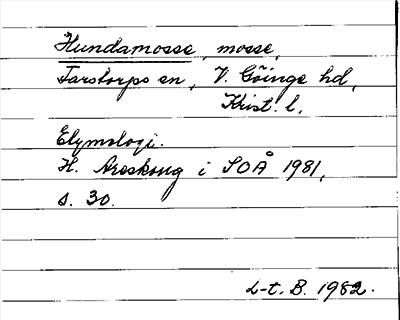 Hundamosse, mosse,
Farstorps sn, V. Göinge hd,
Krist. l.
Etymologi.
H. Areskoug i SOÅ 1981,
s. 30.
L-t. B. 1982.